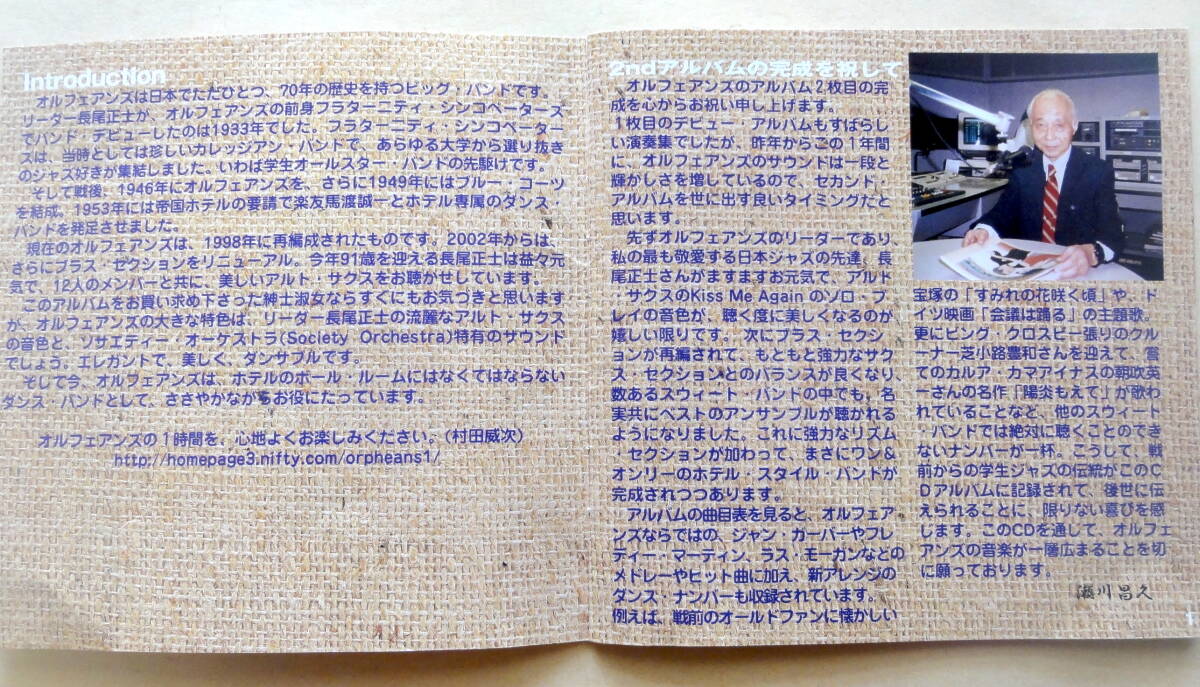 Introduction
オルフェアンズは日本でただひとつ、70年の歴史を持つビッグ・バンドです。
リーダー長尾正士が、オルフェアンズの前身フラタ一ニティ・シンコペーターズ
でバンド・デビューしたのは1933年でした。フラターニティ・シンコペーター
ズは、当時としては珍しいカレッジアン・バンドで、あらゆる大学から選り抜き
のジャズ好きが集結しました。いわば学生オールスター・バンドの先駆けです。
そして戦後、1946年にオルフェアンズを、さらに1949年にはブルー・コーツ
を結成。1953年には帝国ホテルの要請で楽友馬渡誠一とホテル専属のダンス・
バンドを発足させました。
現在のオルフェアンズは、1998年に再編成されたものです。2002年からは、
さらにブラス・セクションをリニューアル。今年91歳を迎える長尾正士は益々元
気で、12人のメンバーと共に、美しいアルト・サクスをお聴かせしています。
このアルバムをお買い求め下さった紳士淑女ならすぐにもお気づきと思います
が、オルフェアンズの大きな特色は、リーダー長尾正士の流麗なアルト・サクス
の音色と、ソサエティー・オーケストラ(Society Orchestra)特有のサウンド
でしょう。エレガントで、美しく、ダンサブルです。
そして今、オルフェアンズは、ホテルのボール・ルームにはなくてはならない
ダンス・バンドとして、ささやかながらお役にたっています。
オルフェアンズの1時間を、心地よくお楽しみください。(村田威次)
http://homepage3.nifty.com/orpheans1/
2ndアルバムの完成を祝して
オルフェアンズのアルバム2枚目の完
成を心からお祝い申し上げます。
1枚目のデビュー・アルバムもすばらし
い演奏集でしたが、昨年からこの1年間
に、オルフェアンズのサウンドは一段と
輝かしさを増しているので、セカンド・
アルバムを世に出す良いタイミングだと
思います。
先ずオルフェアンズのリーダーであり、
私の最も敬愛する日本ジャズの先達、長
尾正士さんがますますお元気で、アルト
・サクスのKiss Me Again のソロ・プ
レイの音色が、聴く度に美しくなるのが
嬉しい限りです。次にブラス・セクシ
ョンが再編されて、もともと強力なサク
ス・セクションとのバランスが良くなり、
数あるスウィート・バンドの中でも、名
実共にベストのアンサンブルが聴かれる
ようになりました。これに強力なリズム
・セクションが加わって、まさにワン＆
オンリーのホテル・スタイル・バンドが
完成されつつあります。
アルバムの曲目表を見ると、オルフェア
ンズならではの、ジャン・ガーバーやフレ
ディー・マーティン、ラス・モーガンなどの
メドレーやヒット曲に加え、新アレンジの
ダンス・ナンバーも収録されています。
例えば、戦前のオールドファンに懐かしい
宝塚の「すみれの花咲く頃」や、ド
イツ映画「会議は踊る」の主題歌。
更にビング・クロスビー張りのクル
ーナー芝小路豊和さんを迎えて、嘗
てのカルア・カマアイナスの朝吹英
一さんの名作「陽炎もえて」が歌わ
れていることなど、他のスウィート
・バンドでは絶対に聴くことのでき
ないナンバーが一杯。こうして、戦
前からの学生ジャズの伝統がこのC
Dアルバムに記録されて、後世に伝
えられることに、限りない喜びを感
じます。このCDを通して、オルフェ
アンズの音楽が一層広まることを切
に願っております。
瀬川昌久
1